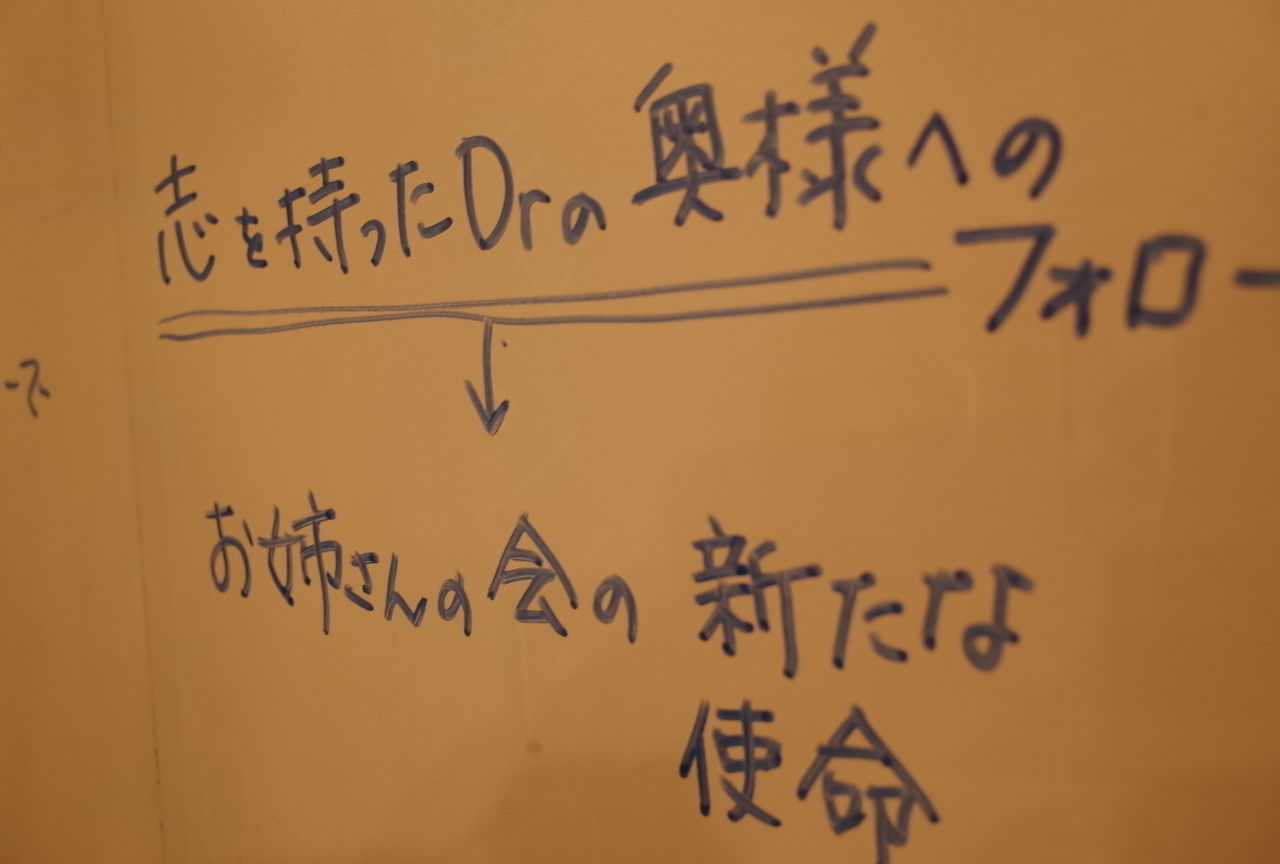 志を持ったDrの奥様への
フォロー
↓
お姉さんの会の新たな
使命